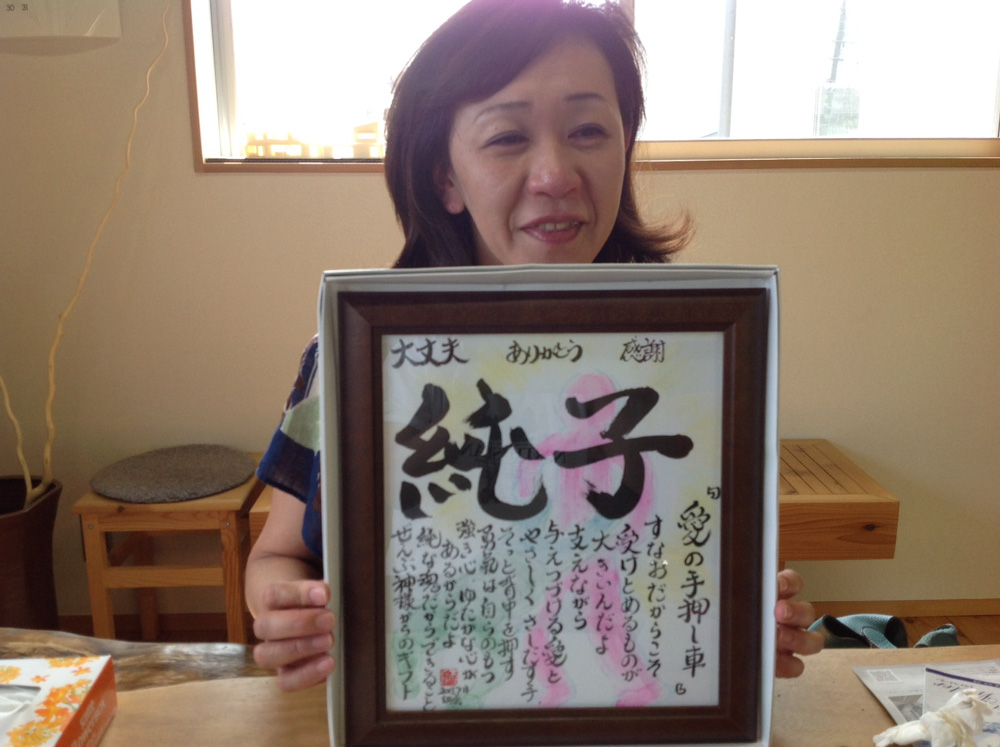 30 31
大丈夫 ありがとう 感謝
純子
『愛の手押し車』
すなおだからこそ
受けとめるものが
大きいんだよ
支えながら
与えつづける愛と
やさしくさしだす手
そっと背中を押す
勇気は自らのもつ
強き心 ゆたかな心が
あるからだよ
純な魂だからできること
ぜんぶ神様からのギフト